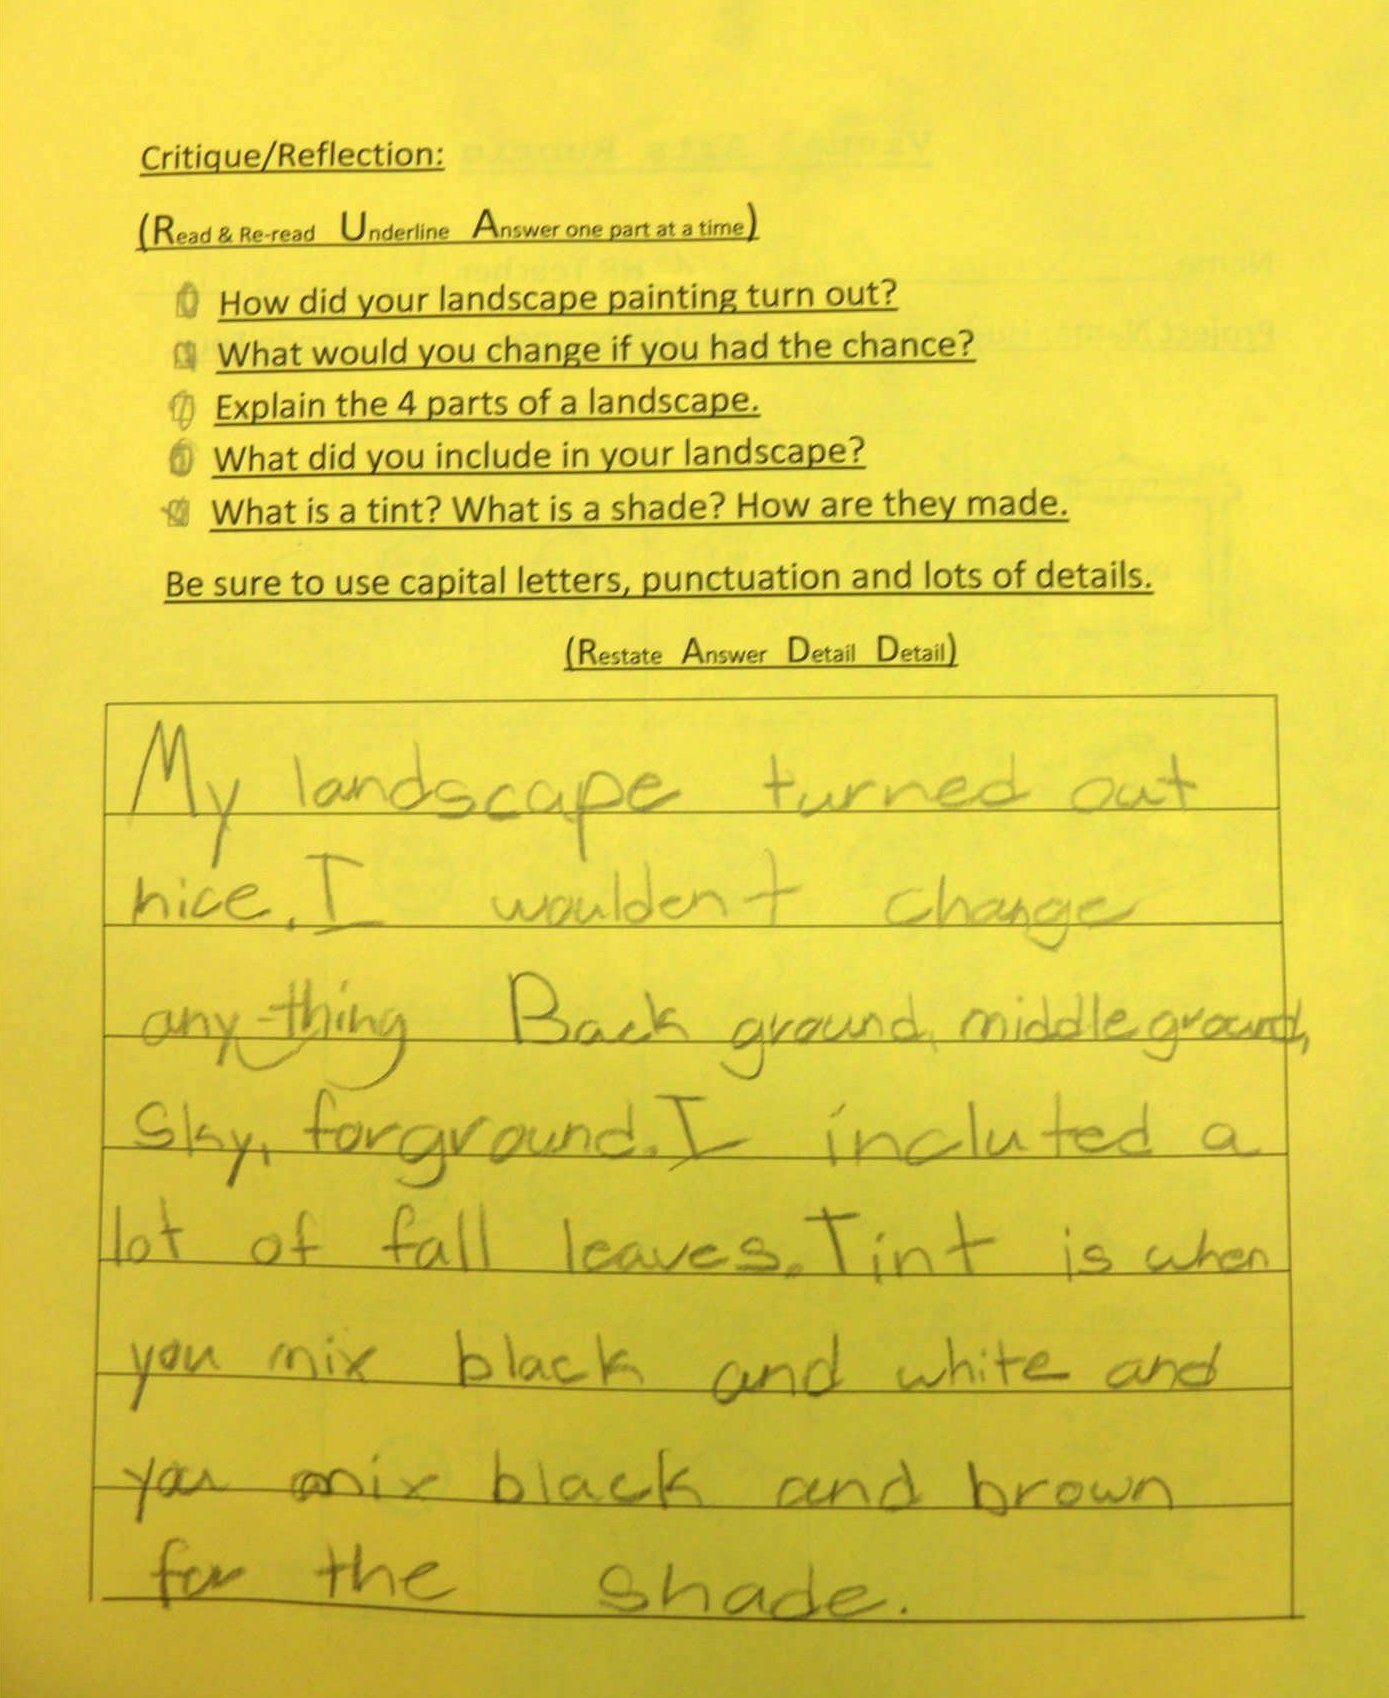 Critique/Reflection:
(Read & Re-read Underline Answer one part at a time)
How did your landscape painting turn out?
What would you change if you had the chance?
Explain the 4 parts of a landscape.
What did you include in your landscape?
What is a tint? What is a shade? How are they made.
Be sure to use capital letters, punctuation and lots of details.
(Restate Answer Detail Detail)
My landscape turned out
nice. I woulden't change
any-thing Back ground, middle ground,
Sky, forground. I incluted a
lot of fall leaves. Tint is when
you mix black and white and
you mix black and brown
for the shade.